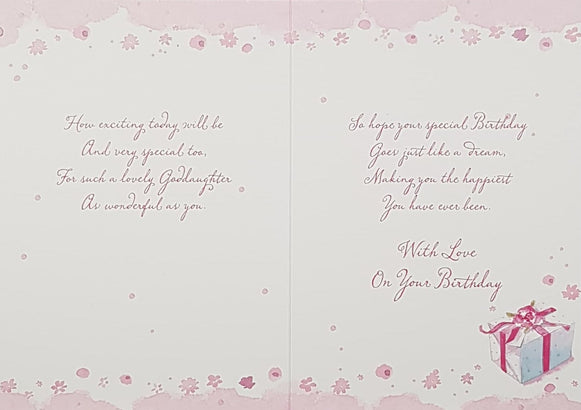 How exciting today will be
And very special too,
For such a lovely Goddaughter
As wonderful as you.
So hope your special Birthday
Goes just like a dream,
Making you the happiest
You have ever been.
With Love
On Your Birthday